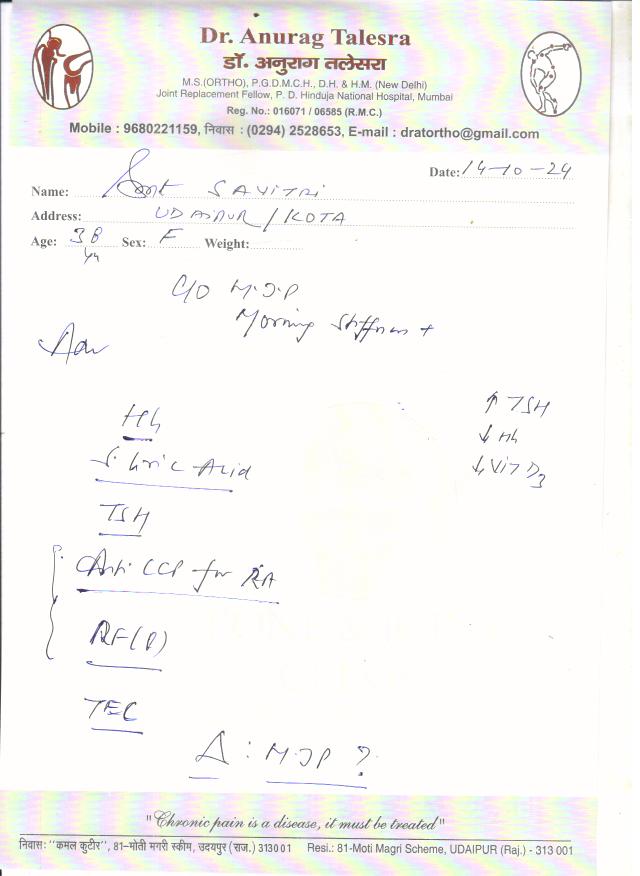 Dr. Anurag Talesra
डॉ. अनुराग तलेसरा
M.S.(ORTHO), P.G.D.M.C.H., D.H. & H.M. (New Delhi)
Joint Replacement Fellow, P. D. Hinduja National Hospital, Mumbai
Reg. No.: 016071 / 06585 (R.M.C.)
Mobile : 9680221159, निवास : (0294) 2528653, E-mail : dratortho@gmail.com
Date: 14-10-24
Name: Smt SAVITRI
Address: UDAIPUR / KOTA
Age: 38 yr Sex: F Weight:
C/O M.J.P
Morning Stiffness +
Adv
Hb
S. Uric Acid
TSH
Anti CCP for RA
RF(P)
TEC
↑ TSH
↓ Hb
↓ VIT D3
Δ : M.J.P ?
"Chronic pain is a disease, it must be treated"
निवास: "कमल कुटीर", 81-मोती मगरी स्कीम, उदयपुर (राज.) 313001 Resi.: 81-Moti Magri Scheme, UDAIPUR (Raj.) - 313 001